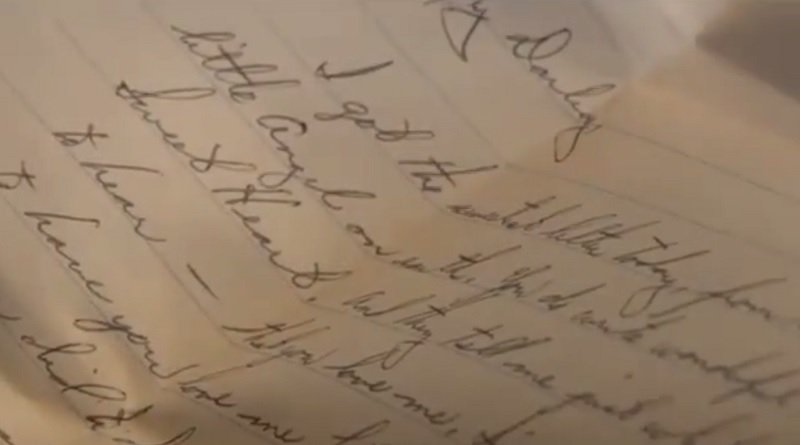 My Darling
I got the sweetest letter today, from
little Angel on earth. You do write wonderful
Sweet Heart, and they tell me just what
to hear — that you love me,
to have you love me
did